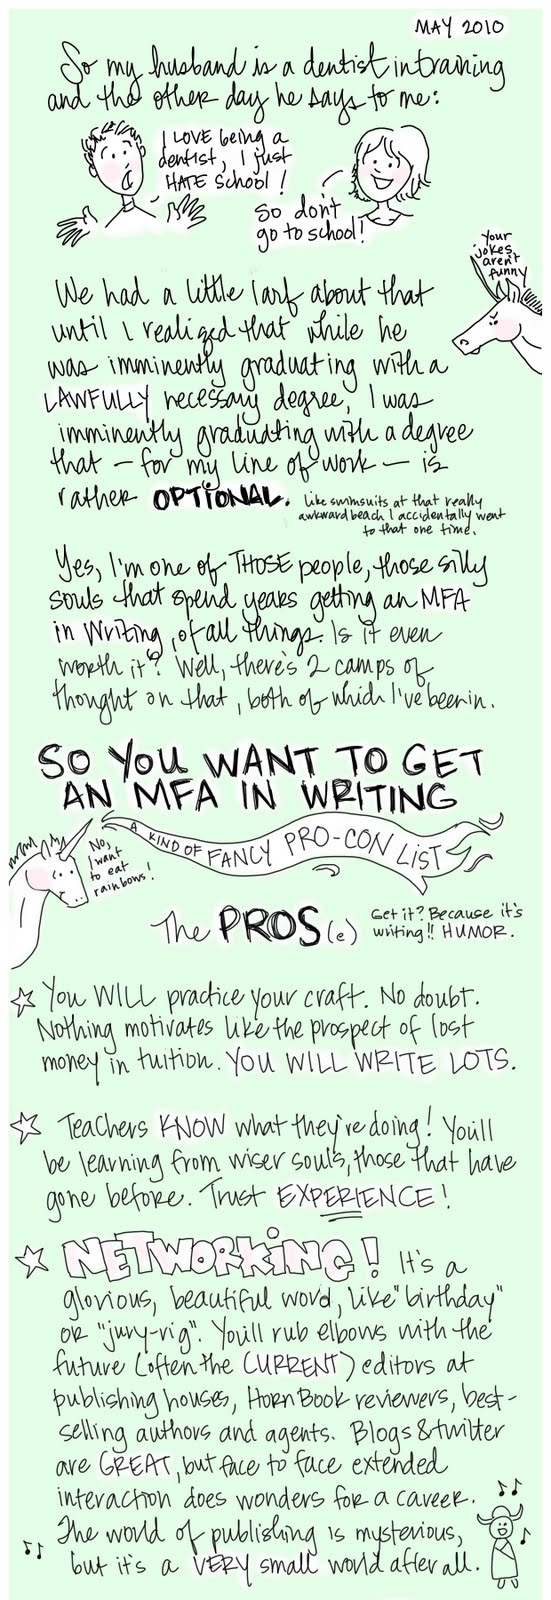 MAY 2010
So my husband is a dentist in training
and the other day he says to me:
I LOVE being a
dentist, I just
HATE school!
So don't
go to school!
Your
jokes
aren't
funny
We had a little larf about that
until I realized that while he
was imminently graduating with a
LAWFULLY necessary degree, I was
imminently graduating with a degree
that — for my line of work — is
rather OPTIONAL.
like swimsuits at that really
awkward beach I accidentally went
to that one time.
Yes, I'm one of THOSE people, those silly
souls that spend years getting an MFA
in Writing, of all things. Is it even
worth it? Well, there's 2 camps of
thought on that, both of which I've been in.
SO YOU WANT TO GET
AN MFA IN WRITING
A KIND OF FANCY PRO-CON LIST
No,
I want
to eat
rainbows!
The PROS(e)
Get it? Because it's
writing!! HUMOR.
You WILL practice your craft. No doubt.
Nothing motivates like the prospect of lost
money in tuition. YOU WILL WRITE LOTS.
Teachers KNOW what they're doing! You'll
be learning from wiser souls, those that have
gone before. Trust EXPERIENCE!
NETWORKING! It's a
glorious, beautiful word, like "birthday"
or "jury-rig". You'll rub elbows with the
future (often the CURRENT) editors at
publishing houses, Horn Book reviewers, best-
selling authors and agents. Blogs & twitter
are GREAT, but face to face extended
interaction does wonders for a career.
The world of publishing is mysterious,
but it's a VERY small world after all.